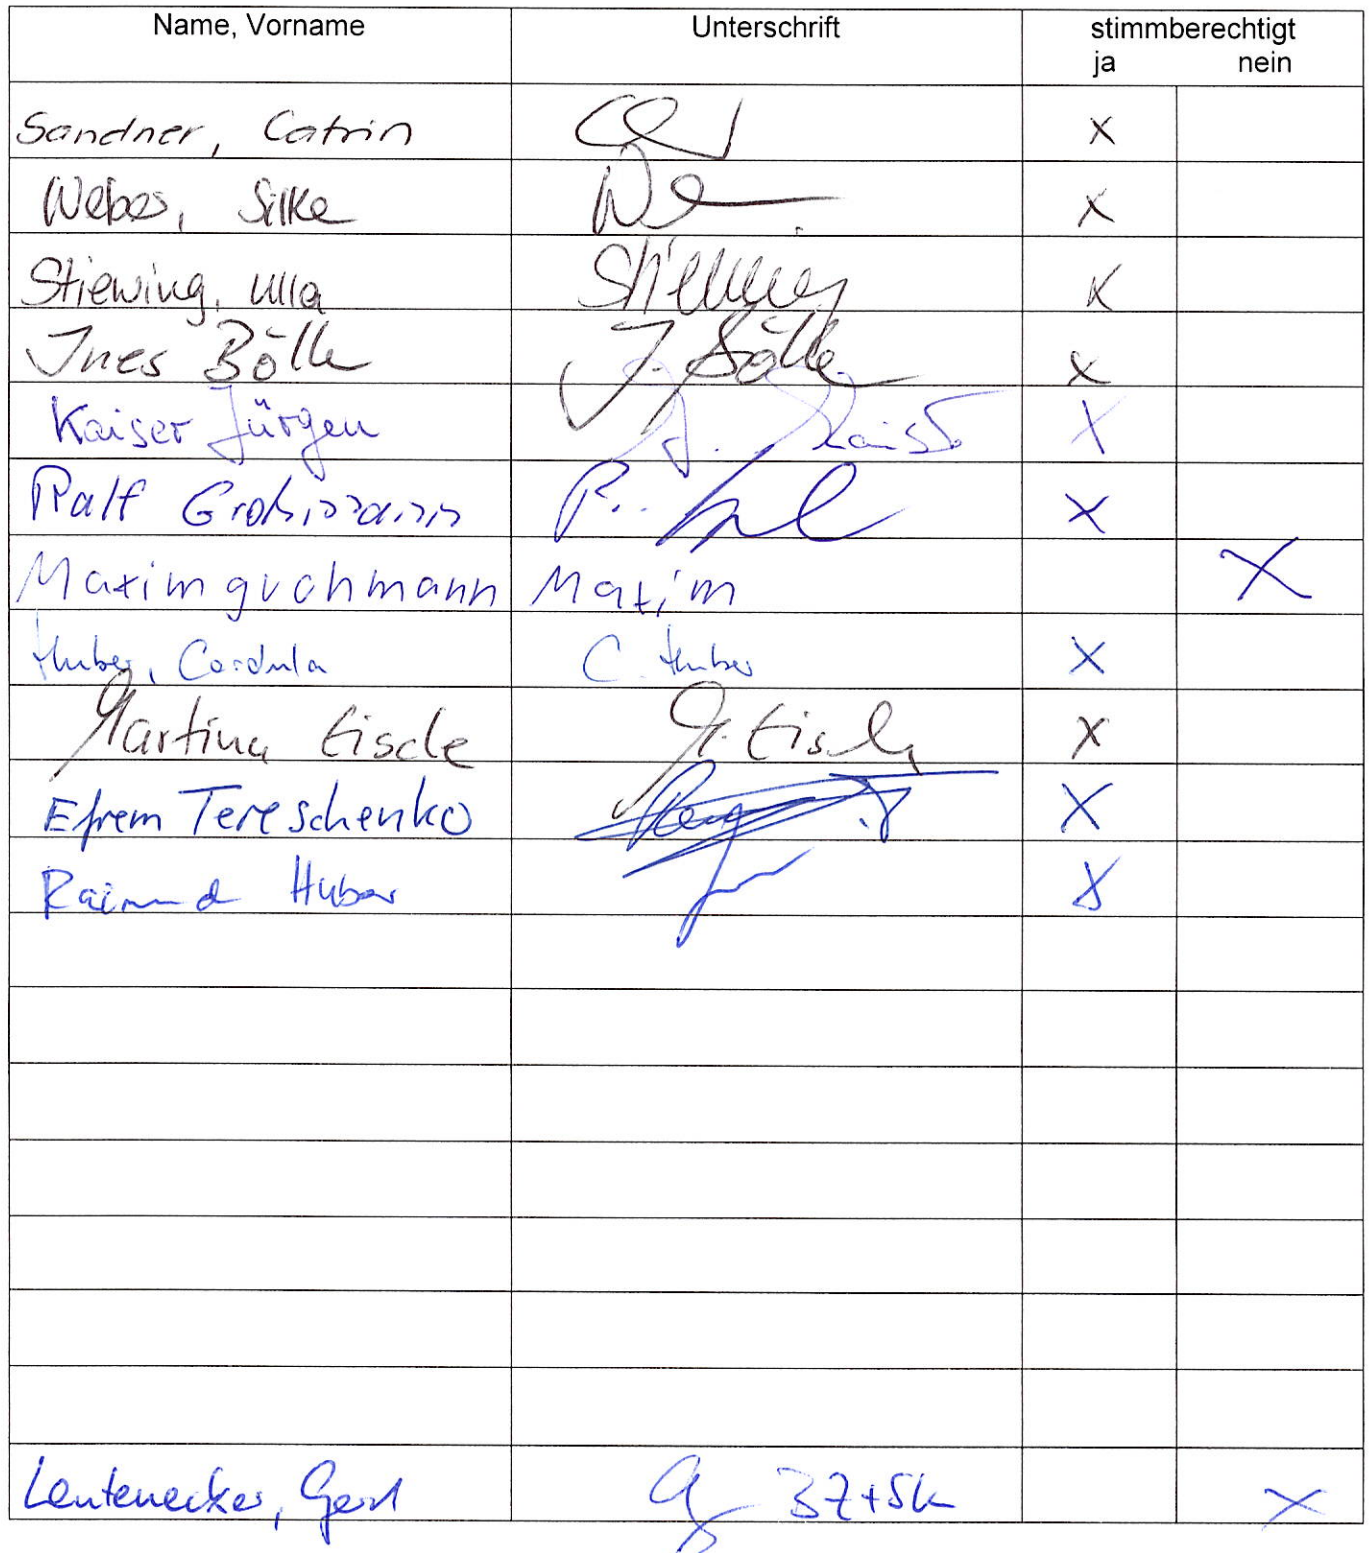 Name, Vorname Unterschrift stimmberechtigt
ja nein
Sandner, Catrin x
Weber, Silke x
Stiewing, Ulla Stiewing x
Ines Bölle I. Bölle x
Kaiser Jürgen J. Kaiser x
Ralf Grohmann x
Maxim grohmann Maxim x
Huber, Cordula C. Huber x
Martina Eisele M. Eisele x
Efrem Tereschenko x
Raimund Huber x
Leutenecker, Gerd x